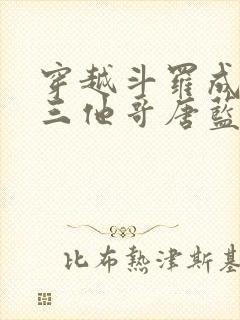 穿越斗羅成
三他哥唐藍
比布熱津斯基